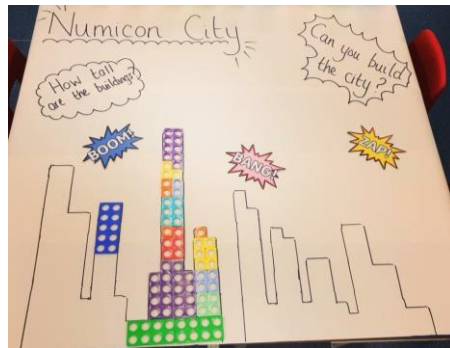 Numicon City
Can you build
the city?
How tall
are the buildings?
BOOM!
BANG!
ZAP!